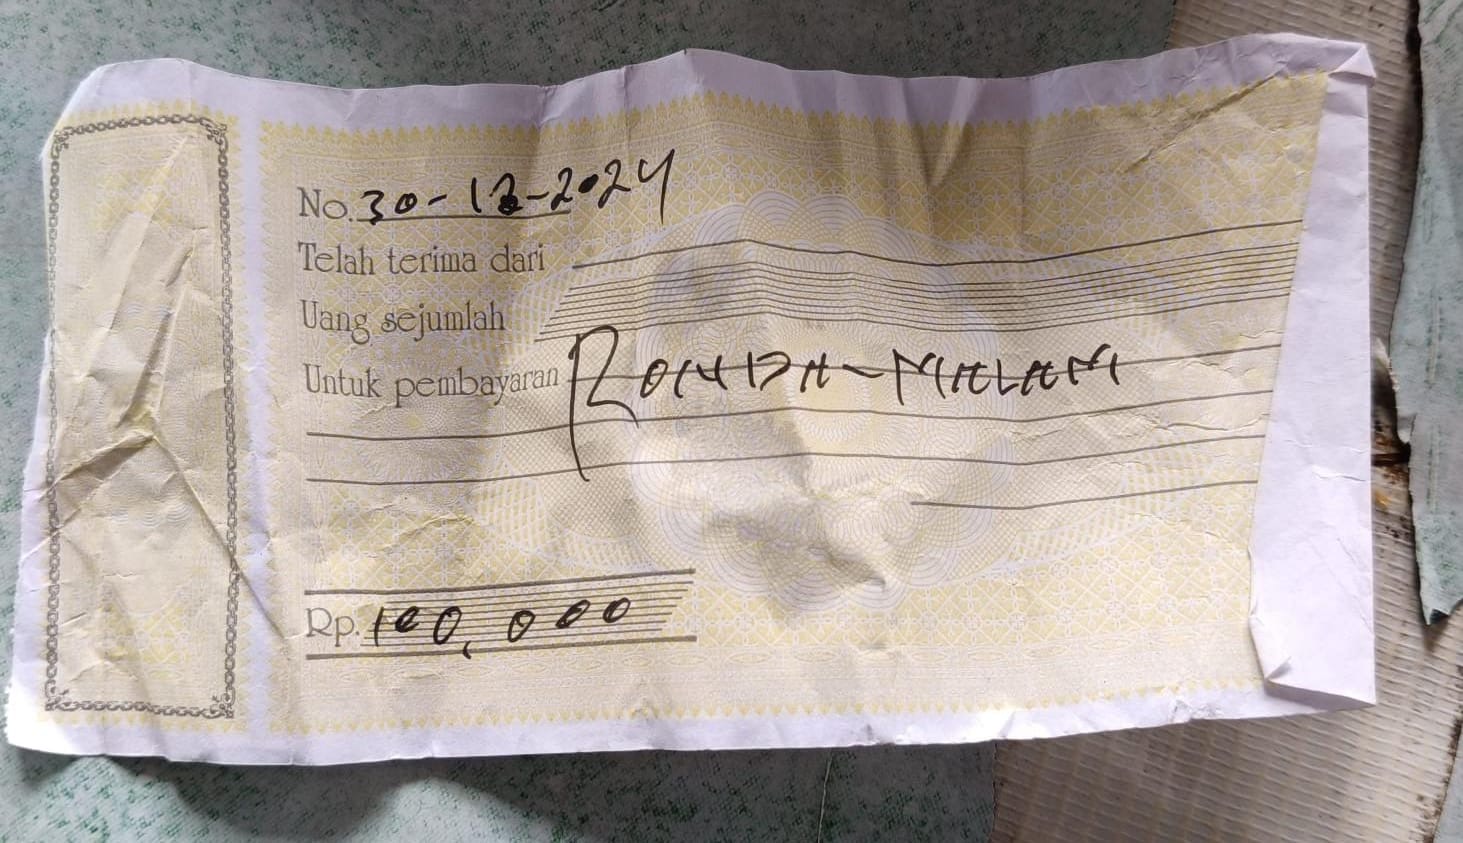 No. 30-12-2024
Telah terima dari
Uang sejumlah
Untuk pembayaran RONDA-MALAM
Rp. 100,000